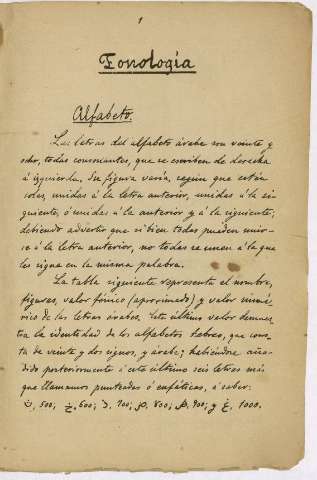 1
Fonología
Alfabeto.
Las letras del alfabeto árabe son veinte y
ocho, todas consonantes, que se escriben de derecha
á izquierda. Su figura varía, según que estén
solas, unidas á la letra anterior, unidas á la si-
guiente, ó unidas á la anterior y á la siguiente;
debiendo advertir que si bien todas pueden unir-
se á la letra anterior, no todas se unen á la que
les sigue en la misma palabra.
La tabla siguiente representa el nombre,
figuras, valor fónico (aproximado) y valor numé-
rico de las letras árabes. Este último valor demues-
tra la identidad de los alfabetos hebreo, que cons-
ta de veinte y dos signos, y árabe; habiéndose aña-
dido posteriormente á este último seis letras más
que llamamos punteadas ó enfáticas, á saber:
500; 600; 700; 800; 900; y 1000.